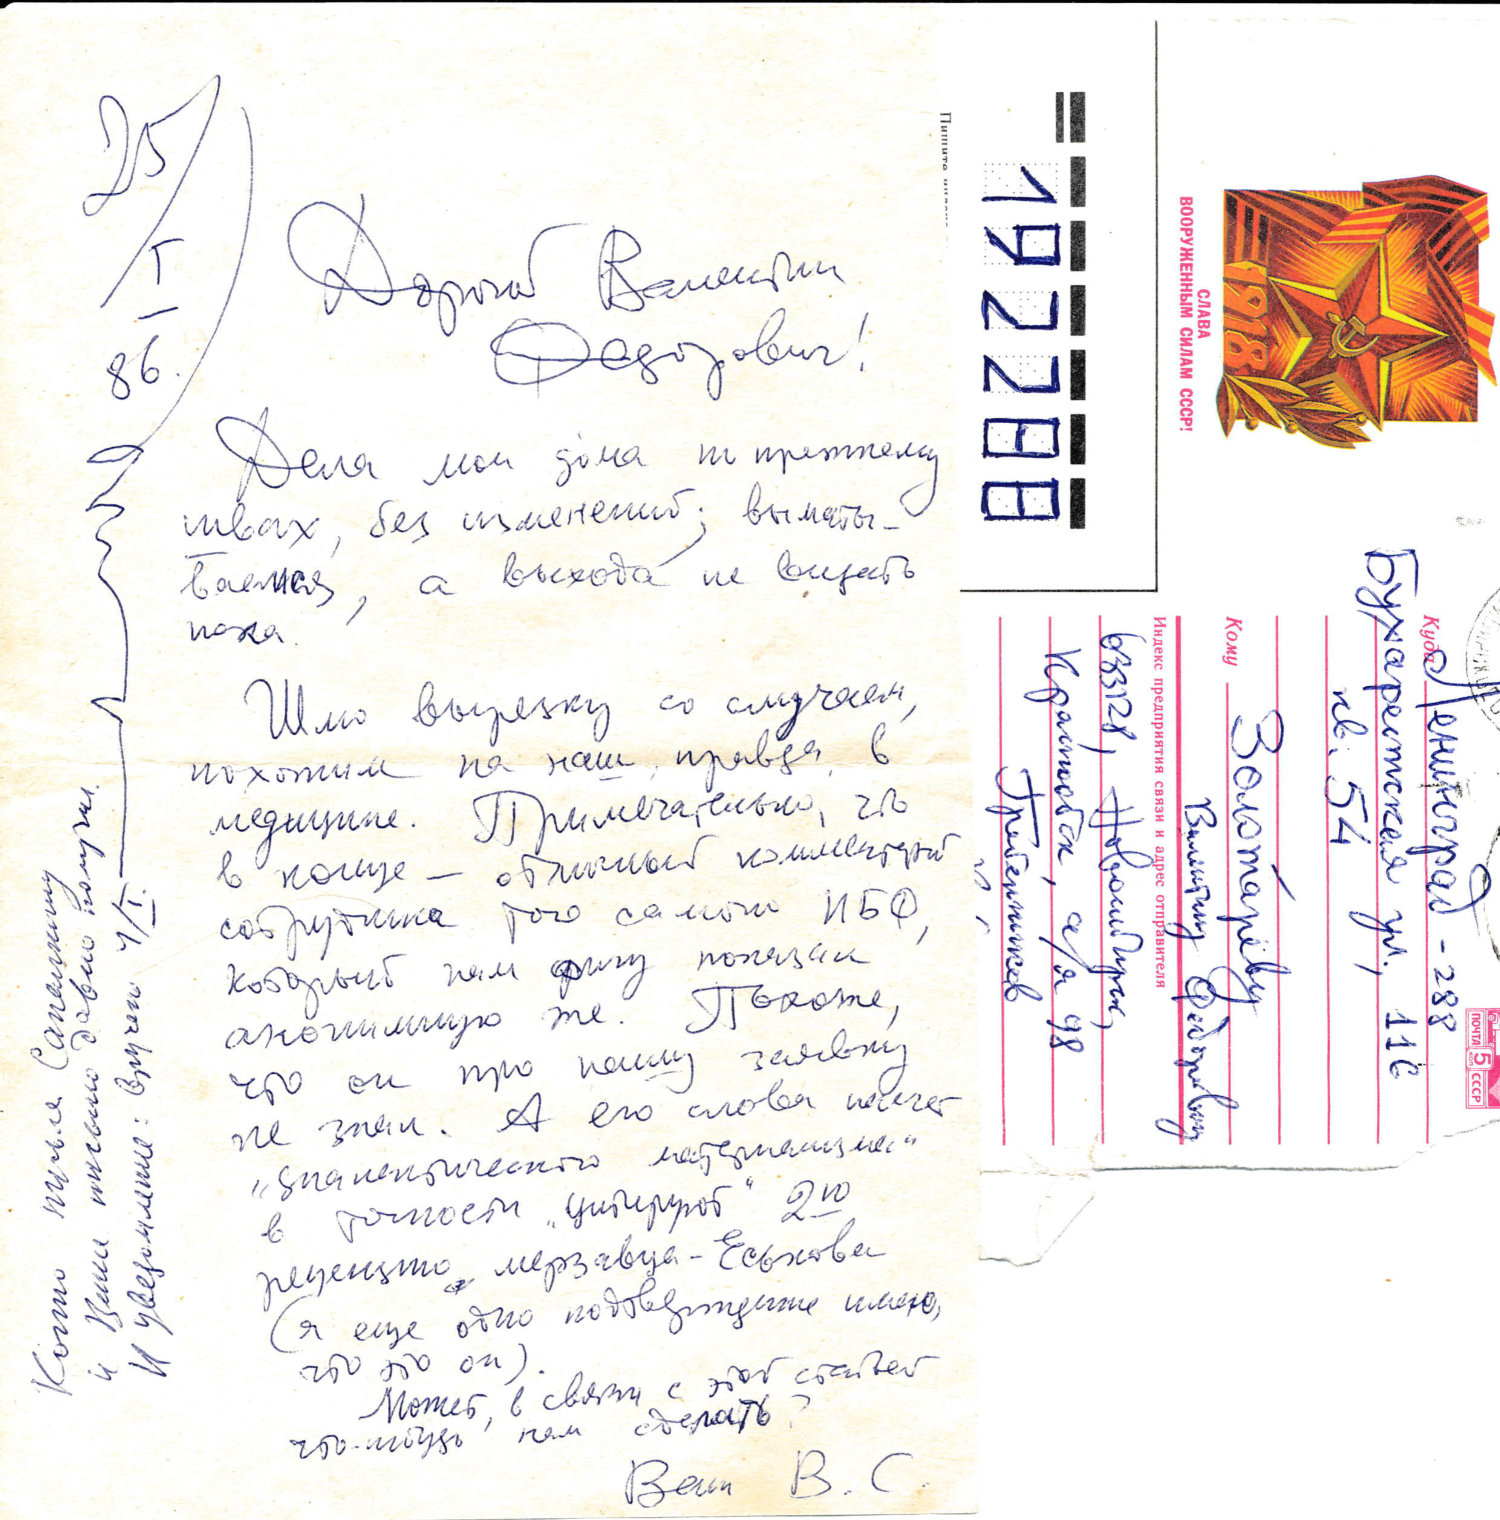 25/I 86.
Дорогой Валентин
Федорович!
Дела мои дома по прежнему
швах, без изменений; выматы-
ваемся, а выхода не видать
пока.
Шлю вырезку со случаем,
похожим на наш, правда, в
медицине. Примечательно, что
в конце — отличный комментарий
сотрудника того самого ИБФ,
который нам фигу показал
анонимную же. Похоже,
что он про нашу заявку
не знал. А его слова насчет
„диалектического материализма“
в точности „цитируют“ 2ую
рецензию мерзавца - Еськова
(я еще одно подтверждение имею,
что это он).
Может, в связи с этой статьей
что-нибудь нам сделать?
Ваш В. С.
Копию письма
и Ваше письмо давно получил.
И уведомление: вручено 4/I.
Пишите
192288
СЛАВА
ВООРУЖЕННЫМ СИЛАМ СССР!
1918
Куда Ленинград - 288
Бухарестская ул., 116
кв. 54
Кому Золотарёву
Валентину Федоровичу
Индекс предприятия связи и адрес отправителя
633128, Новосибирск,
Краснообск, а/я 98
Гребенников
В.С.
ПОЧТА СССР
5 КОП